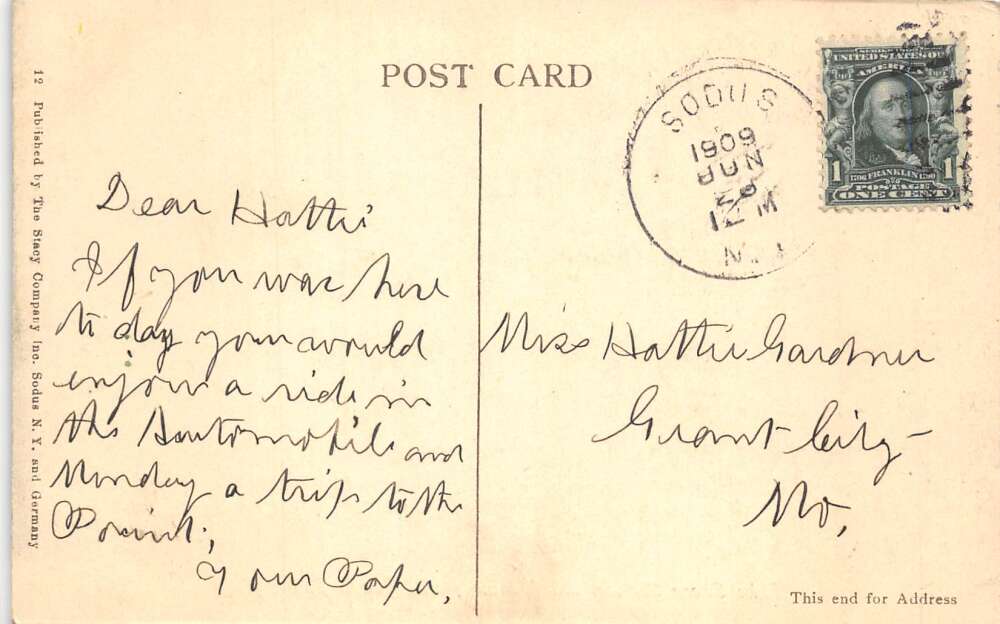 POST CARD
SODUS
1909
JUN
12 M
N.Y.
UNITED STATES OF
AMERICA
1 FRANKLIN 1
POSTAGE
ONE CENT
12 Published by The Stacy Company Inc. Sodus N. Y. and Germany
Dear Hattie
If you was here
to day you would
enjoy a ride in
the Automobile and
Monday a trip to the
Point,
Your Papa,
Miss Hattie Gardner
Grant City
Mo,
This end for Address